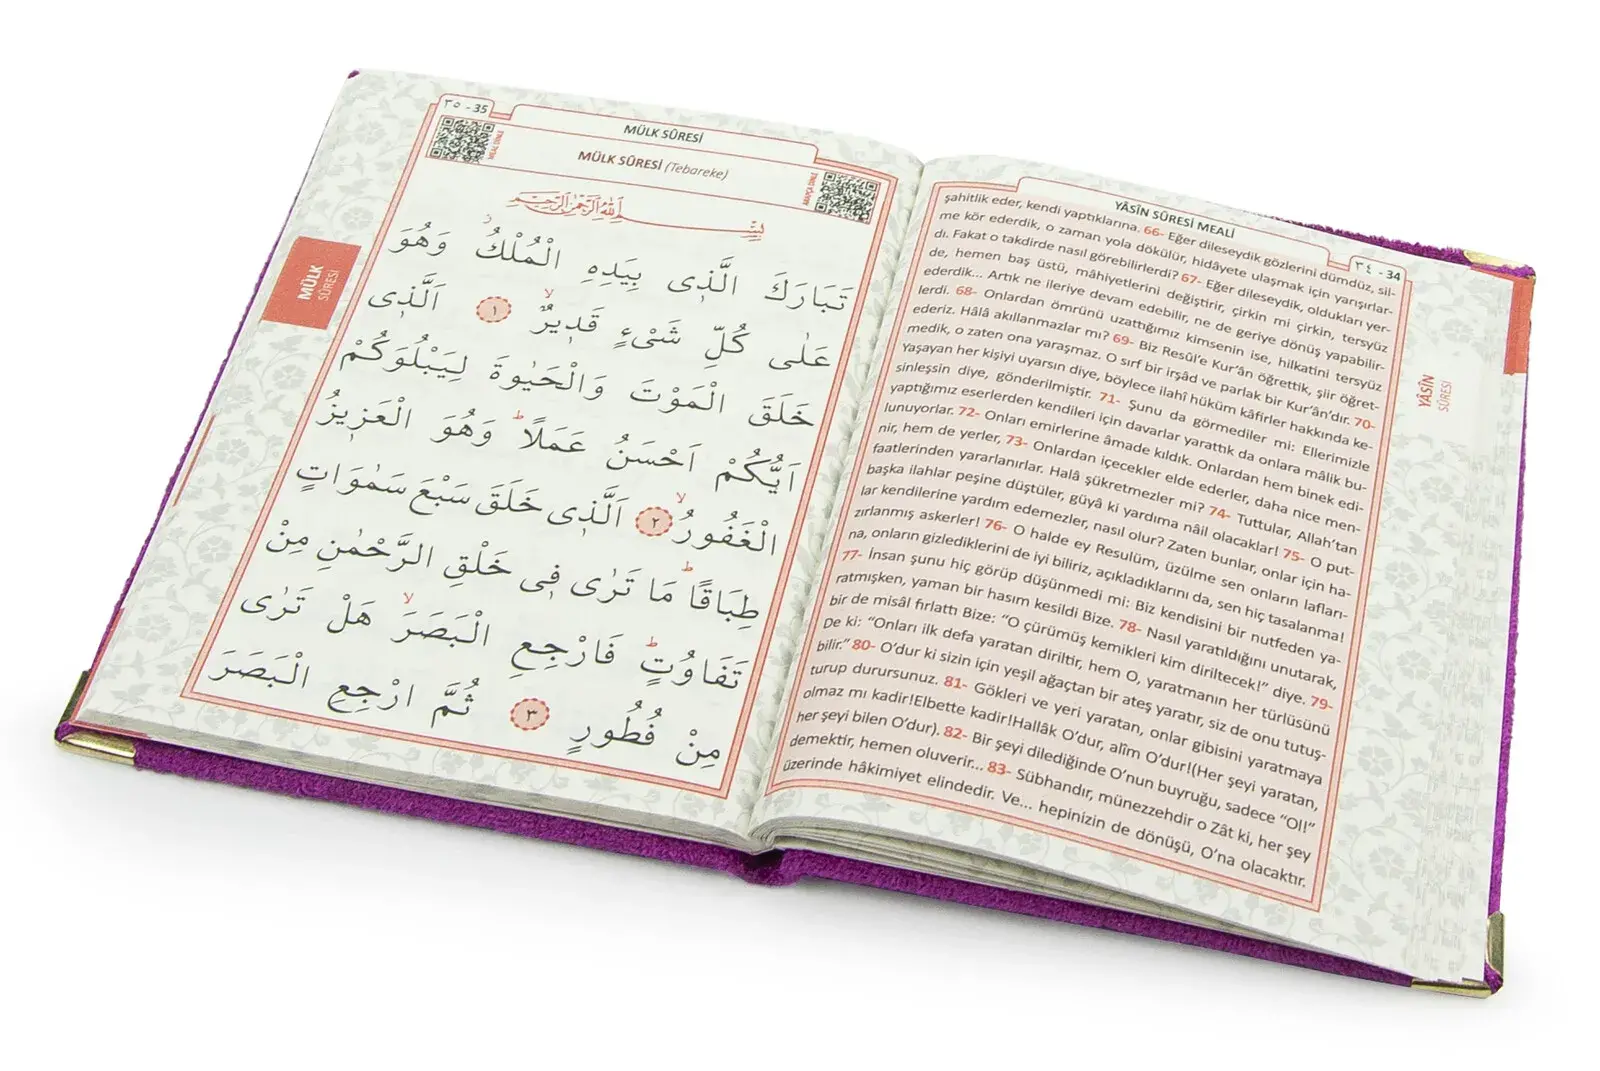 YÂSİN SÛRESİ MEALİ
٣٤ - 34
şahitlik eder, kendi yaptıklarına. 66- Eğer dileseydik gözlerini dümdüz, sil-
me kör ederdik, o zaman yola dökülür, hidâyete ulaşmak için yarışırlar-
dı. Fakat o takdirde nasıl görebilirlerdi? 67- Eğer dileseydik, oldukları yer-
de, hemen baş üstü, mâhiyetlerini değiştirir, çirkin mi çirkin, tersyüz
ederdik... Artık ne ileriye devam edebilir, ne de geriye dönüş yapabilir-
lerdi. 68- Onlardan ömrünü uzattığımız kimsenin ise, hilkatini tersyüz
ederiz. Hâlâ akıllanmazlar mı? 69- Biz Resûl'e Kur'ân öğrettik, şiir öğret-
medik, o zaten ona yaraşmaz. O sırf bir irşâd ve parlak bir Kur'ân'dır. 70-
Yaşayan her kişiyi uyarsın diye, böylece ilahî hüküm kâfirler hakkında ke-
sinleşsin diye, gönderilmiştir. 71- Şunu da görmediler mi: Ellerimizle
yaptığımız eserlerden kendileri için davarlar yarattık da onlara mâlik bu-
lunuyorlar. 72- Onları emirlerine âmade kıldık. Onlardan hem binek edi-
nir, hem de yerler, 73- Onlardan içecekler elde ederler, daha nice men-
faatlerinden yararlanırlar. Halâ şükretmezler mi? 74- Tuttular, Allah'tan
başka ilahlar peşine düştüler, güyâ ki yardıma nâil olacaklar! 75- O put-
lar kendilerine yardım edemezler, nasıl olur? Zaten bunlar, onlar için ha-
zırlanmış askerler! 76- O halde ey Resulüm, üzülme sen onların lafları-
na, onların gizlediklerini de iyi biliriz, açıkladıklarını da, sen hiç tasalanma!
77- İnsan şunu hiç görüp düşünmedi mi: Biz kendisini bir nutfeden ya-
ratmışken, yaman bir hasım kesildi Bize. 78- Nasıl yaratıldığını unutarak,
bir de misâl fırlattı Bize: "O çürümüş kemikleri kim diriltecek!" diye. 79-
De ki: "Onları ilk defa yaratan diriltir, hem O, yaratmanın her türlüsünü
bilir." 80- O'dur ki sizin için yeşil ağaçtan bir ateş yaratır, siz de onu tutuş-
turup durursunuz. 81- Gökleri ve yeri yaratan, onlar gibisini yaratmaya
olmaz mı kadir!Elbette kadir!Hallâk O'dur, alîm O'dur!(Her şeyi yaratan,
her şeyi bilen O'dur). 82- Bir şeyi dilediğinde O'nun buyruğu, sadece "Ol!"
demektir, hemen oluverir... 83- Sübhandır, münezzehdir o Zât ki, her şey
üzerinde hâkimiyet elindedir. Ve... hepinizin de dönüşü, O'na olacaktır.
YÂSİN
SÛRESİ
٣٥ - 35
MÜLK SÛRESİ
MEAL DİNLE
MÜLK SÛRESİ (Tebareke)
ARAPÇA DİNLE
بِسْمِ اللّٰهِ الرَّحْمٰنِ الرَّحِيمِ
تَبَارَكَ الَّذ۪ى بِيَدِهِ الْمُلْكُۘ وَهُوَ
عَلٰى كُلِّ شَىْءٍ قَد۪يرٌۙ ﴿١﴾ اَلَّذ۪ى
خَلَقَ الْمَوْتَ وَالْحَيٰوةَ لِيَبْلُوَكُمْ
اَيُّكُمْ اَحْسَنُ عَمَلًاۜ وَهُوَ الْعَز۪يزُ
الْغَفُورُۙ ﴿٢﴾ اَلَّذ۪ى خَلَقَ سَبْعَ سَمٰوَاتٍ
طِبَاقًاۜ مَا تَرٰى ف۪ى خَلْقِ الرَّحْمٰنِ مِنْ
تَفَاوُتٍۜ فَارْجِعِ الْبَصَرَۙ هَلْ تَرٰى
مِنْ فُطُورٍ ﴿٣﴾ ثُمَّ ارْجِعِ الْبَصَرَ
MÜLK
SÛRESİ